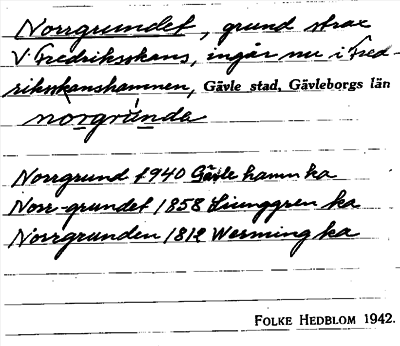 Norrgrundet, grund strax
V. Fredriksskans, ingår nu i Fred-
riksskanshamnen, Gävle stad, Gävleborgs län
norgrúnda
Norrgrund 1940 Gävle hamn ka
Norr-grundet 1858 Ljunggren ka
Norrgrunden 1812 Werming ka
FOLKE HEDBLOM 1942.